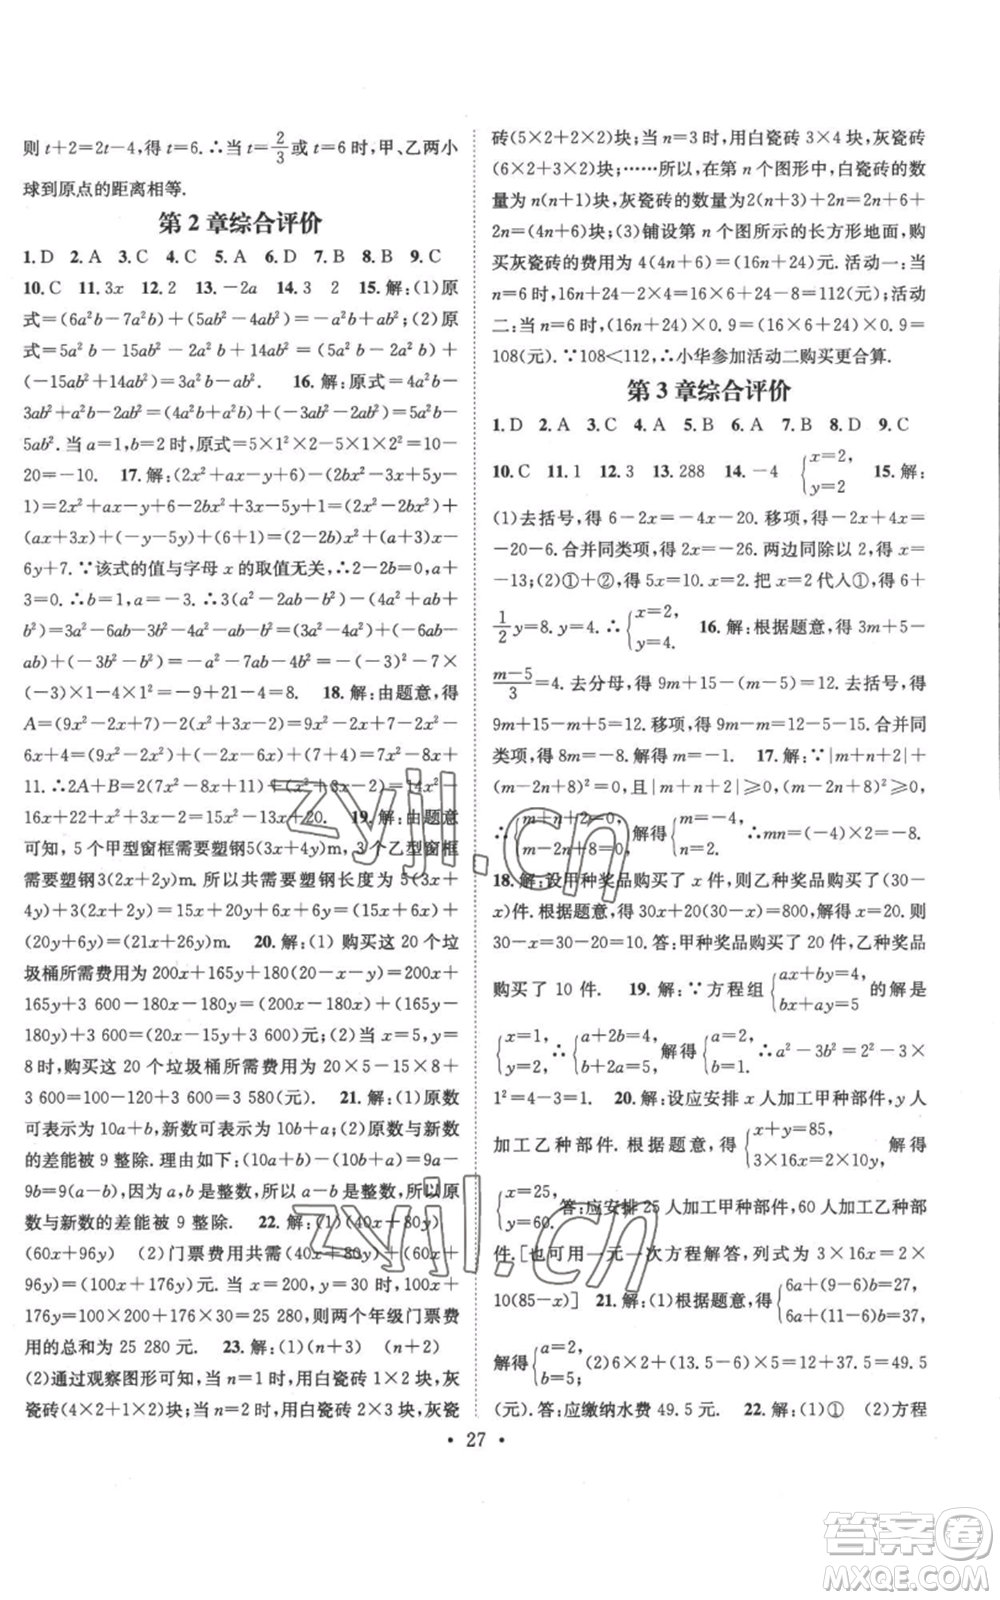 则 t+2=2t-4,得 t=6.∴当 t=2/3 或 t=6 时,甲、乙两小
球到原点的距离相等.
第 2 章综合评价
1. D 2. A 3. C 4. C 5. A 6. D 7. B 8. B 9. C
10. C 11. 3x 12. 2 13. -2a 14. 3 2 15. 解:(1)原
式=(6a²b-7a²b)+(5ab²-4ab²)=-a²b+ab²;(2)原
式=5a²b-15ab²-2a²b+14ab²=(5a²b-2a²b)
+(-15ab²+14ab²)=3a²b-ab². 16. 解:原式=4a²b-
3ab²+ab²-5a²b+2ab²+
5ab². 当 a=1,b=2 时,原式=5×1²×2-5×1×2²=10-
20=-10. 17. 解:(2x²+ax-y+6)-(2bx²-3x+5y-
1)=2x²+ax-y+6-2bx²+3x-5y+1=(2x²-2bx²)+
(ax+3x)+(-y-5y)+(6+1)=(2-2b)x²+(a+3)x-
6y+7. ∵该式的值与字母 x 的取值无关,∴2-2b=0,a
+3=0. ∴b=1,a=-3. ∴3(a²-2ab-b²)-(4a²+ab+
b²)=3a²-6ab-3b²-4a²-ab-b²=(3a²-4a²)+(-6ab-
ab)+(-3b²-b²)=-a²-7ab-4b²=-(-3)²-7×
(-3)×1-4×1²=-9+21-4=8. 18. 解:由题意,得
A=(9x²-2x+7)-2(x²+3x-2)=9x²-2x+7-2x²-
6x+4=(9x²-2x²)+(-2x-6x)+(7+4)=7x²-8x+
11. ∴2A+B=2(7x²-8x+11)+x²+3x-2=14x²-
16x+22+x²+3x-2=15x²-13x+20. 19. 解:由题意
可知,5 个甲型窗框需要塑钢5(3x+4y)m,3 个乙型窗框
需要塑钢3(2x+2y)m. 所以共需要塑钢长度为 5(3x+
4y)+3(2x+2y)=15x+20y+6x+6y=
(20y+6y)=(21x+26y)m. 20. 解:(1)购买这 20 个垃
圾桶所需费用为 200x+165y+180(20-x-y)=200x+
165y+3 600-180x-180y=(200x-180x)+(165y-
180y)+3 600=(20x-15y+3 600)元;(2)当 x=5,y=
8时,购买这 20 个垃圾桶所需费用为 20×5-15×8+
3 600=100-120+3 600=3 580(元). 21. 解:(1)原数
可表示为 10a+b,新数可表示为 10b+a;(2)原数与新数
的差能被 9 整除. 理由如下:(10a+b)-(10b+a)=9a-
9b=9(a-b),因为 a,b 是整数,所以 a-b 是整数,所以原
数与新数的差能被 9 整除. 22. 解:(1)(40x+80y)
(60x+96y) (2)门票费用共需(40x+80y)+
(60x+96y)=(100x+176y)元. 当 x=200,y=30 时,100x+
176y=100×200+176×30=25 280,则两个年级门票费
用的总和为 25 280 元. 23. 解:(1)(n+3) (n+2)
(2)通过观察图形可知,当 n=1 时,用白瓷砖 1×2 块,灰
瓷砖(4×2+1×2)块;当 n=2 时,用白瓷砖 2×3 块,灰瓷
砖(5×2+2×2)块;当 n=3 时,用白瓷砖 3×4 块,灰瓷砖
(6×2+3×2)块;……所以,在第 n 个图形中,白瓷砖的数
量为 n(n+1)块,灰瓷砖的数量为2(n+3)+2n=2n+6+
2n=(4n+6)块;(3)铺设第 n 个图所示的长方形地面,购
买灰瓷砖的费用为 4(4n+6)=(16n+24)元. 活动一:当
n=6 时,16n+24-2×4=16×6+24-8=112(元);活动
二:当 n=6 时,(16n+24)×0.9=(16×6+24)×0.9=
108(元). ∵108<112,∴小华参加活动二购买更合算.
第 3 章综合评价
1. D 2. A 3. A 4. C 5. A 6. A 7. B 8. D 9. C
10. C 11. 1 12. 3 13. 288 14. -4 {x=2, y=2 15. 解:
(1)去括号,得 6-2x=4x-4x-20. 移项,得-2x-4x+4x=
-20-6. 合并同类项,得-2x=-26. 两边同除以 2,得 x=
-13;(2)①+②,得 5x=10. 把 x=2 代人①,得 6+
1/2 y=8. y=4. ∴{x=2, y=4. 16. 解:根据题意,得 3m+5-
m-5/3=4. 去分母,得 9m+15-(m-5)=12. 去括号,得
9m+15-m+5=12. 移项,得 9m-m=12-5-15. 合并同
类项,得 8m=-8. 解得 m=-1. 17. 解:∵|m+n+2|+
(m-2n+8)²=0,且|m+n+2|≥0,(m-2n+8)²≥0,
∴{m+n+2=0, m-2n+8=0. 解得{m=-4, n=2. ∴mn=(-4)×2=-8.
18. 解:设甲种奖品购买了 x 件,则乙种奖品购买了(30-
x)件. 根据题意,得 30x+20(30-x)=800,解得 x=20. 则
30-x=30-20=10. 答:甲种奖品购买了 20 件,乙种奖品
购买了 10 件. 19. 解:∵方程组{ax+by=4, bx+ay=5 的解是
{x=1, y=2, ∴{a+2b=4, b+2a=5. 解得{a=2, b=1. ∴a²-3b²=2²-3×
1²=4-3=1. 20. 解:设应安排 x 人加工甲种部件,y 人
加工乙种部件. 根据题意,得{x+y=85, 3×16x=2×10y. 解得
{x=25, y=60. 答:应安排 25 人加工甲种部件,60 人加工乙种部
件.[也可用一元一次方程解答,列式为 3×16x=2×
10(85-x)] 21. 解:(1)根据题意,得{6a+(9-6)b=27, 6a+(11-6)b=37,
解得{a=2, b=5; (2)6×2+(13.5-6)×5=12+37.5=49.5
(元). 答:应缴纳水费 49.5 元. 22. 解:(1)① (2)方程
• 27 •
zyjl.cn
zyjl.cn
答案圈
MXQE.COM